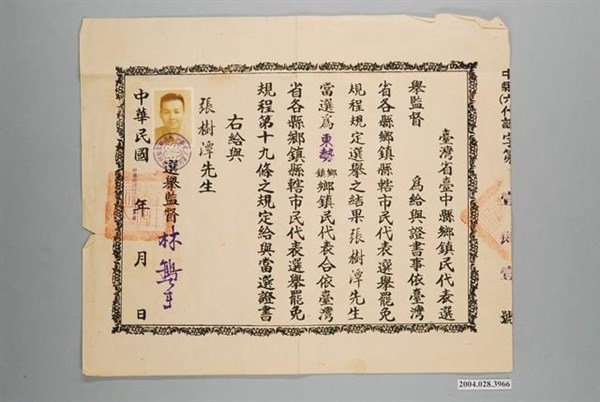 臺灣省臺中縣鄉鎮民代表選
舉監督　為給與證書事依臺灣
省各縣鄉鎮縣轄市民代表選舉罷免
規程規定選舉之結果張樹潭先生
當選為東勢鄉鎮鄉鎮民代表合依臺灣
省各縣鄉鎮縣轄市民代表選舉罷免
規程第十九條之規定給與當選證書
右給與
張樹潭先生
選舉監督林鶴年
中華民國　年　月　日
號
2004.028.3966